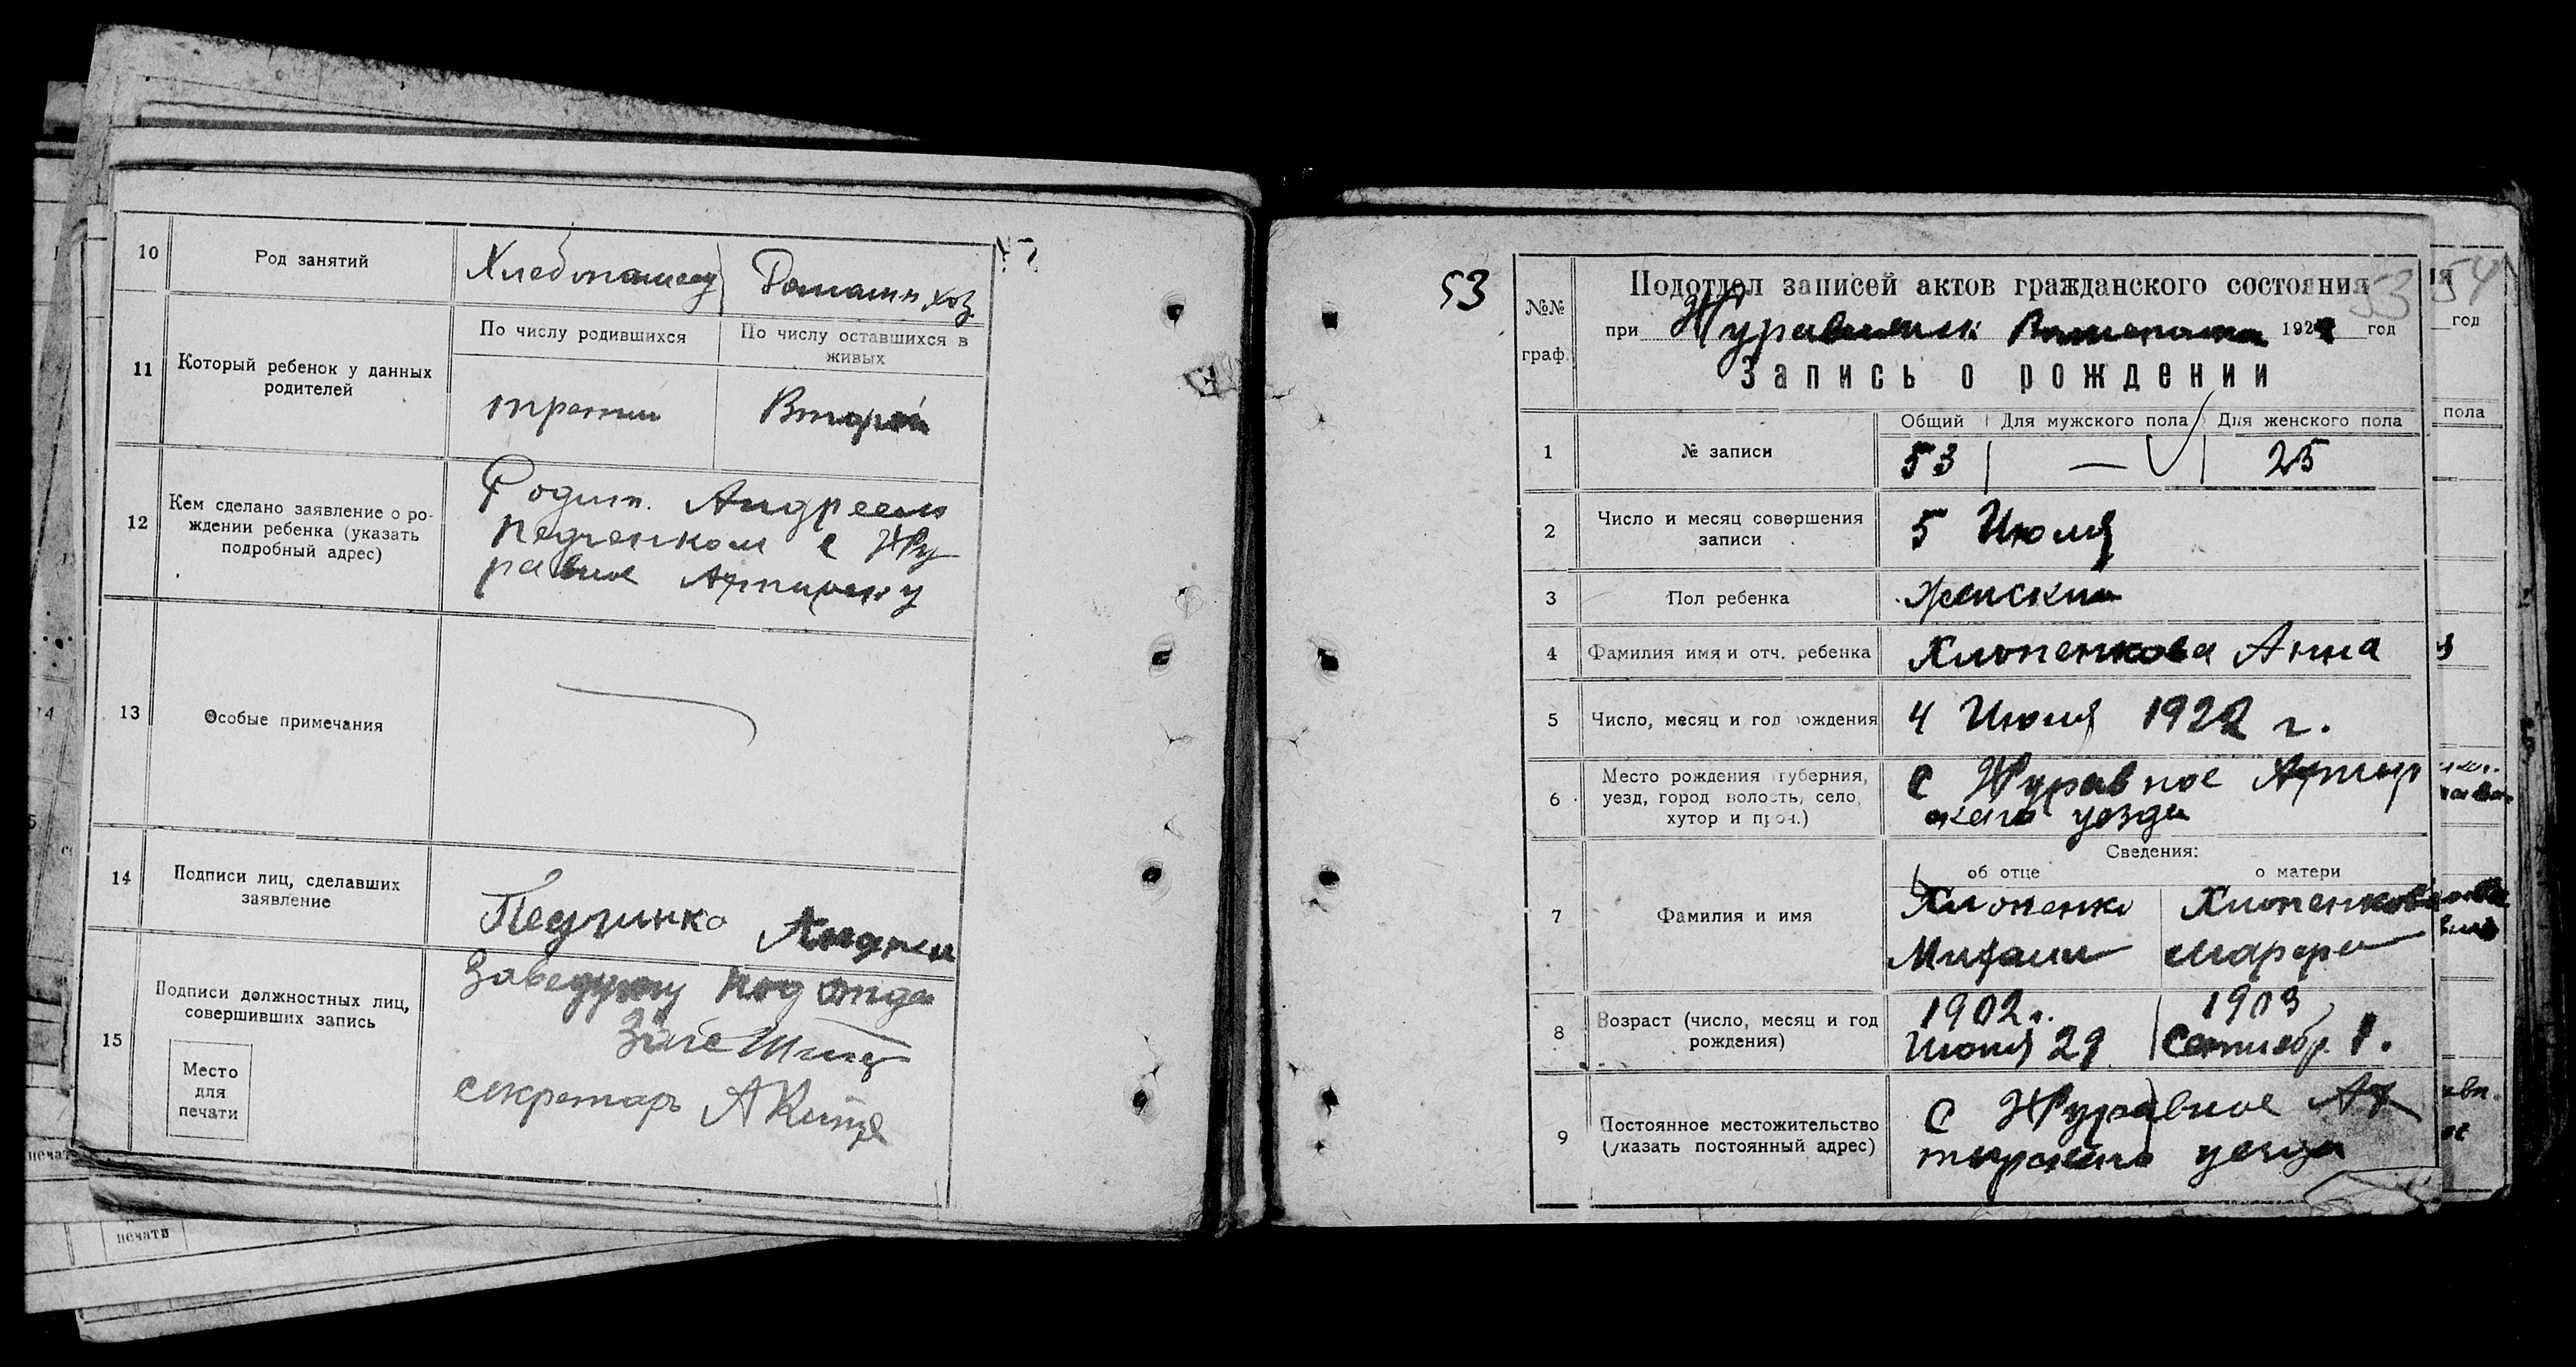 10 Род занятий Хлебопашец Домашн. хоз.
11 Который ребенок у данных родителей
По числу родившихся По числу оставшихся в живых
третий Второй
12 Кем сделано заявление о ро-
ждении ребенка (указать
подробный адрес)
Родит. Андреем
Педченком с Жу
равное Ахтырск. у
13 Особые примечания
14 Подписи лиц, сделавших
заявление
Педчинко Андрей
15 Подписи должностных лиц,
совершивших запись
Место
для
печати
Заведующ подотде
секретарь
печати
53
№№
граф.
Подотдел записей актов гражданского состояния
53
при Журавненск. 192 год
Запись о рождении
Общий Для мужского пола Для женского пола
1 № записи 53 — 25
2 Число и месяц совершения
записи
5 Июля
3 Пол ребенка женский
4 Фамилия имя и отч. ребенка Хлопенкова Анна
5 Число, месяц и год рождения 4 Июля 1922 г.
6 Место рождения (губерния,
уезд, город волость, село,
хутор и проч.)
с Журавное Ахтыр
ского уезда
Сведения:
об отце о матери
7 Фамилия и имя
Хлопенко Хлопенкова
Михаил Марфа
8 Возраст (число, месяц и год
рождения)
1902 г. 1903
Июня 29 Сентябр. 1.
9 Постоянное местожительство
(указать постоянный адрес)
с Журавное Ах
тырского уезда
54
год
пола